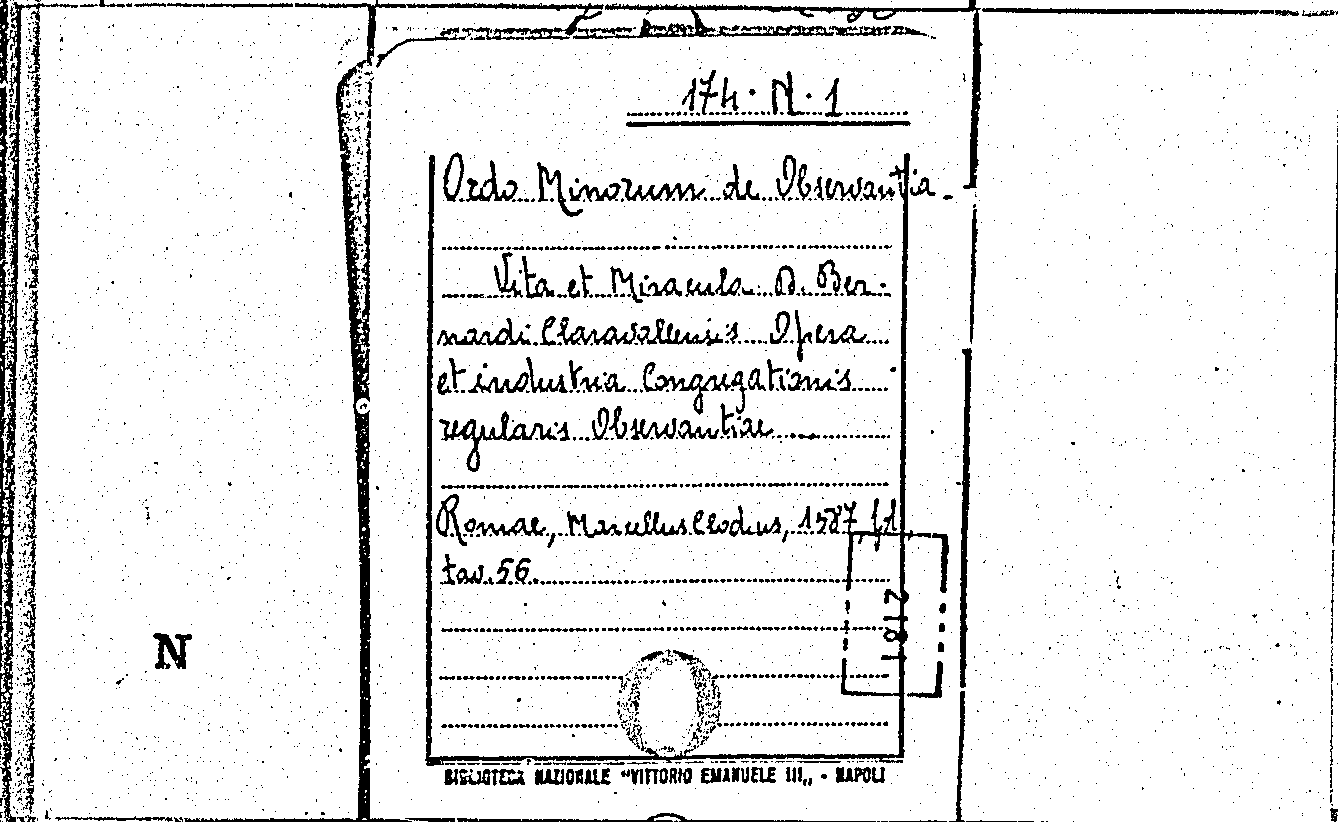 174. N. 1
Ordo Minorum de Observantia.
Vita et Miracula D. Ber-
nardi Claravallensis Opera
et industria Congregationis
regularis Observantiae ....
Romae, Marcellus Clodus, 1587, f.l,
tav. 56.
1812
N
BIBLIOTECA NAZIONALE "VITTORIO EMANUELE III„ - NAPOLI